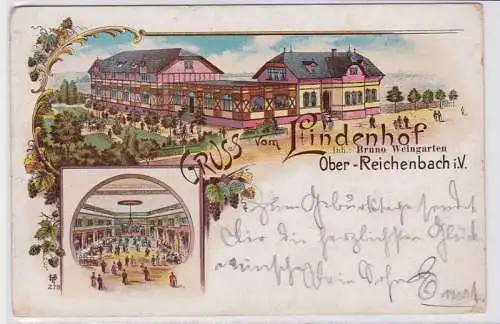 Gruss vom Lindenhof
Inh.: Bruno Weingarten
Ober-Reichenbach i.V.
Zum Geburtstage sendet
Dir die herzlichsten Glück
wünsche Dein Sohn
273